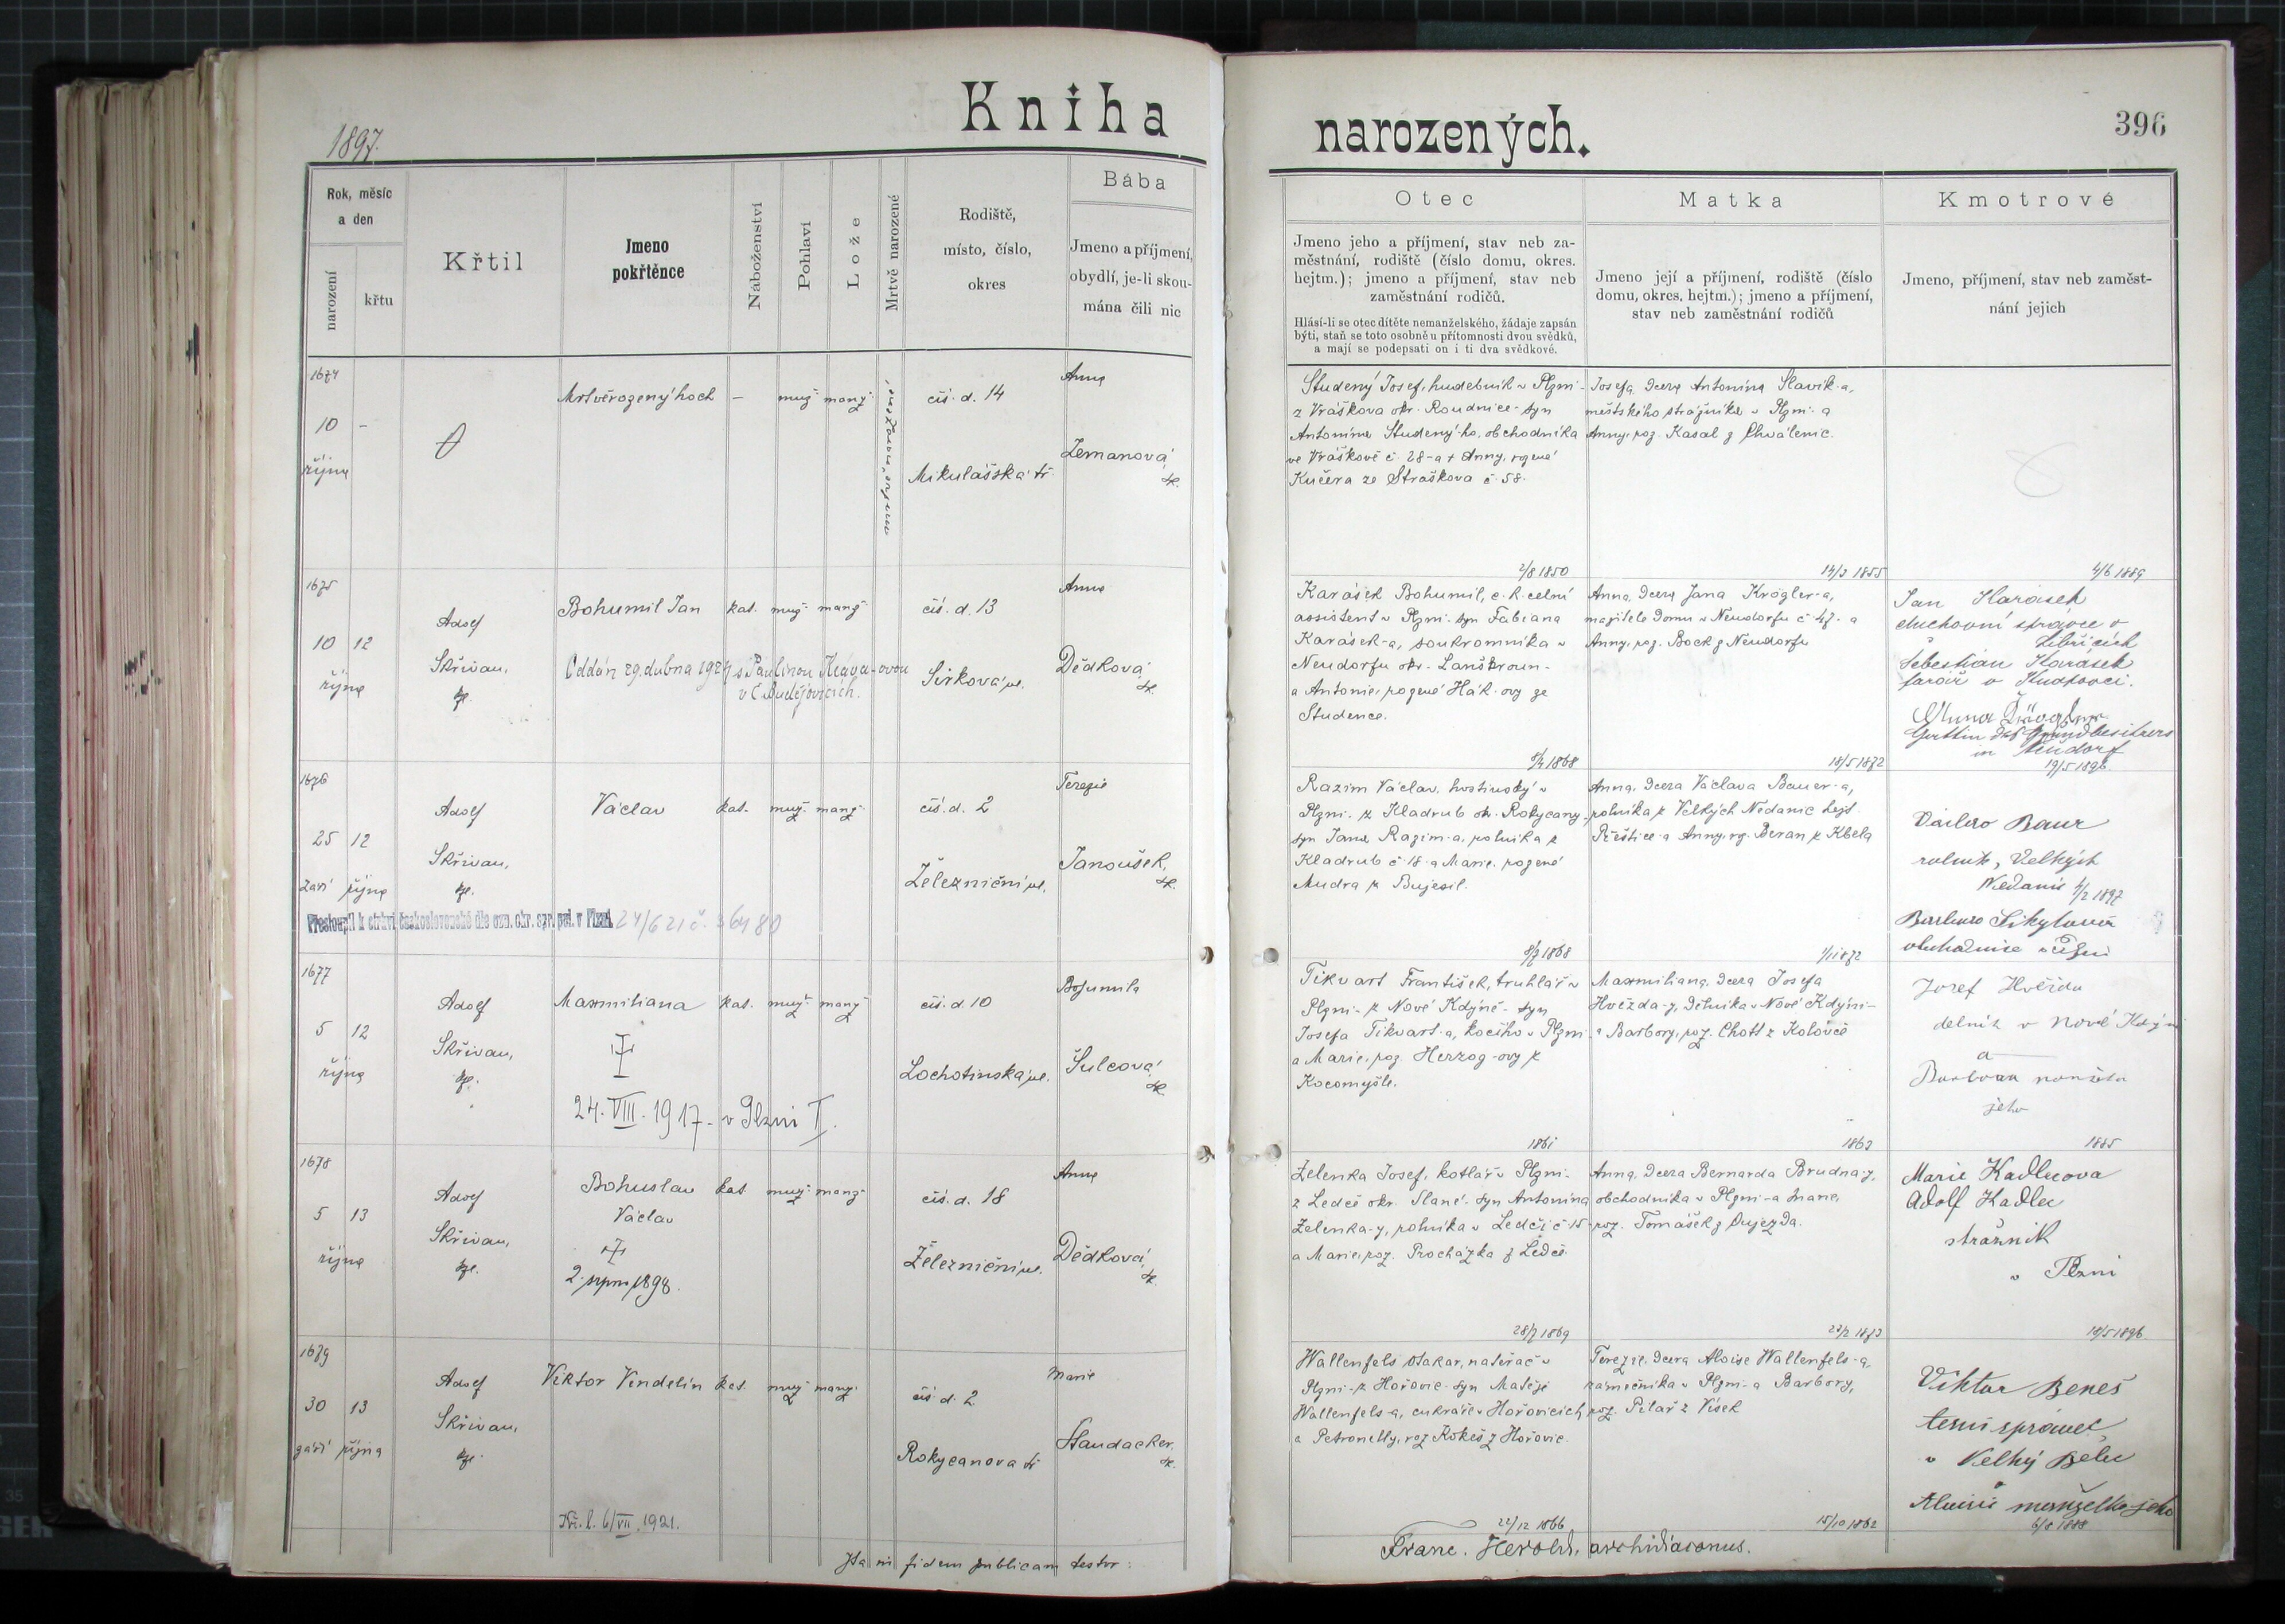 Kniha
1897.
Rok, měsíc
a den
narození
křtu
Křtil
Jmeno
pokřtěnce
Náboženství
Pohlaví
Lože
Mrtvě narozené
Rodiště,
místo, číslo,
okres
Bába
Jmeno a příjmení,
obydlí, je-li skou-
mána čili nic
1674
10 -
října
Mrtvěrozený hoch - muž. manž.
čís. d. 14
Mikulášská tř.
Anna
Zemanová,
zk.
1675
10 12
října
Adolf
Skřivan,
Bohumil Jan kat. muž. manž.
Oddán 29. dubna 1924 s Paulinou
v Č. Budějovicích.
čís. d. 13
Sirková ul.
Anna
Dědková,
zk.
1676
25 12
září října
Adolf
Skřivan,
Václav kat. muž. manž.
čís. d. 2
Železniční ul.
Terezie
Janoušek,
zk.
Přestoupil k církvi československé dle ozn. okr. spr. pol. v Plzni 24/6 21 č. 36480
1677
5 12
října
Adolf
Skřivan,
Maxmiliana kat. muž. manž.
24. VIII. 1917. v Plzni I.
čís. d. 10
Lochotinská ul.
Bohumila
Šulcová,
zk.
1678
5 13
října
Adolf
Skřivan,
Bohuslav kat. muž. manž.
Václav
2. srpna 1898.
čís. d. 18
Železniční ul.
Anna
Dědková,
zk.
1679
30 13
září října
Adolf
Skřivan,
Viktor Vendelín kat. muž. manž.
čís. d. 2
Rokycanova tř.
Marie
Staudacher,
zk.
Kř. l. 6/VII. 1921.
Ita in fidem publicam testor:
narozených.
396
Otec
Jmeno jeho a příjmení, stav neb za-
městnání, rodiště (číslo domu, okres.
hejtm.); jmeno a příjmení, stav neb
zaměstnání rodičů.
Hlásí-li se otec dítěte nemanželského, žádaje zapsán
býti, staň se toto osobně u přítomnosti dvou svědků,
a mají se podepsati on i ti dva svědkové.
Matka
Jmeno její a příjmení, rodiště (číslo
domu, okres. hejtm.); jmeno a příjmení,
stav neb zaměstnání rodičů
Kmotrové
Jmeno, příjmení, stav neb zaměst-
nání jejich
Studený Josef, hudebník v Plzni-
z Vráškova okr. Roudnice- syn
Antonína Studený-ho, obchodníka
ve Vráškově č. 28- a + Anny, rozené
Kučera ze Straškova č. 58.
2/8 1850
Josefa, dcera Antonína Slavík-a,
městského strážníka v Plzni- a
Anny, roz. Kasal z Chválenic.
14/3 1855
4/6 1889
Karásek Bohumil, c. k. celní
assistent v Plzni- syn Fabiana
Karásek-a, soukromníka v
Neudorfu okr. Lanškroun-
a Antonie, rozené Hák-ovy ze
Studence.
1868
Anna, dcera Jana Krögler-a,
majitele domu v Neudorfu č. 47- a
Anny, roz. Bock z Neudorfu
18/5 1872
Jan Karásek
duchovní správce v
Šebestian Karásek
farář v
Anna
Gattin des Grundbesitzers
in Neudorf
19/5 1896.
Razim Václav, hostinský v
Plzni- z Kladrub ok. Rokycany-
syn Jana Razim-a, rolníka z
Kladrub č. 18- a Marie, rozené
Mudra z Bujesil.
8/9 1868
Anna, dcera Václava Bauer-a,
rolníka z Velkých Nedanic hejt.
Přeštice- a Anny, rz. Beran z Kbela
1/11 1872
rolník, Velkých
Nedanic 4/2 1897
Tikvart František, truhlář v
Plzni- z Nové Kdýně- syn
Josefa Tikvart-a, kočího v Plzni-
a Marie, roz. Herzog-ovy z
Kocomyšle.
1861
Maxmiliana, dcera Josefa
Hvězda-y, dělníka v Nové Kdýni-
a Barbory, roz. Chott z Koloveč
1863
Josef Hvězda
dělník v Nové Kdýni
a
Barbora manželka
jeho
1885
Zelenka Josef, kotlář v Plzni-
z Ledče okr. Slané- syn Antonína
Zelenka-y, rolníka v Ledči č. 15-
a Marie, roz. Procházka z Ledče.
28/7 1869
Anna, dcera Bernarda Brudna-y,
obchodníka v Plzni- a Marie,
roz. Tomášek z Oujezda.
23/2 1873
Marie Kadlecova
Adolf Kadlec
strážník
v Plzni
10/5 1896
Wallenfels Otakar, natěrač v
Plzni- z Hořovic- syn Matěje
Wallenfels-a, cukráře v Hořovicích
a Petronelly, roz. Kokeš z Hořovic.
22/12 1866
Terezie, dcera Aloise Wallenfels-a,
zámečníka v Plzni- a Barbory,
roz. Pilař z Vísek
15/10 1862
Viktor Beneš
lesní správce
v Velký Bělu
a
manželka jeho
6/8 1888
Franc. Herold, archidiaconus.